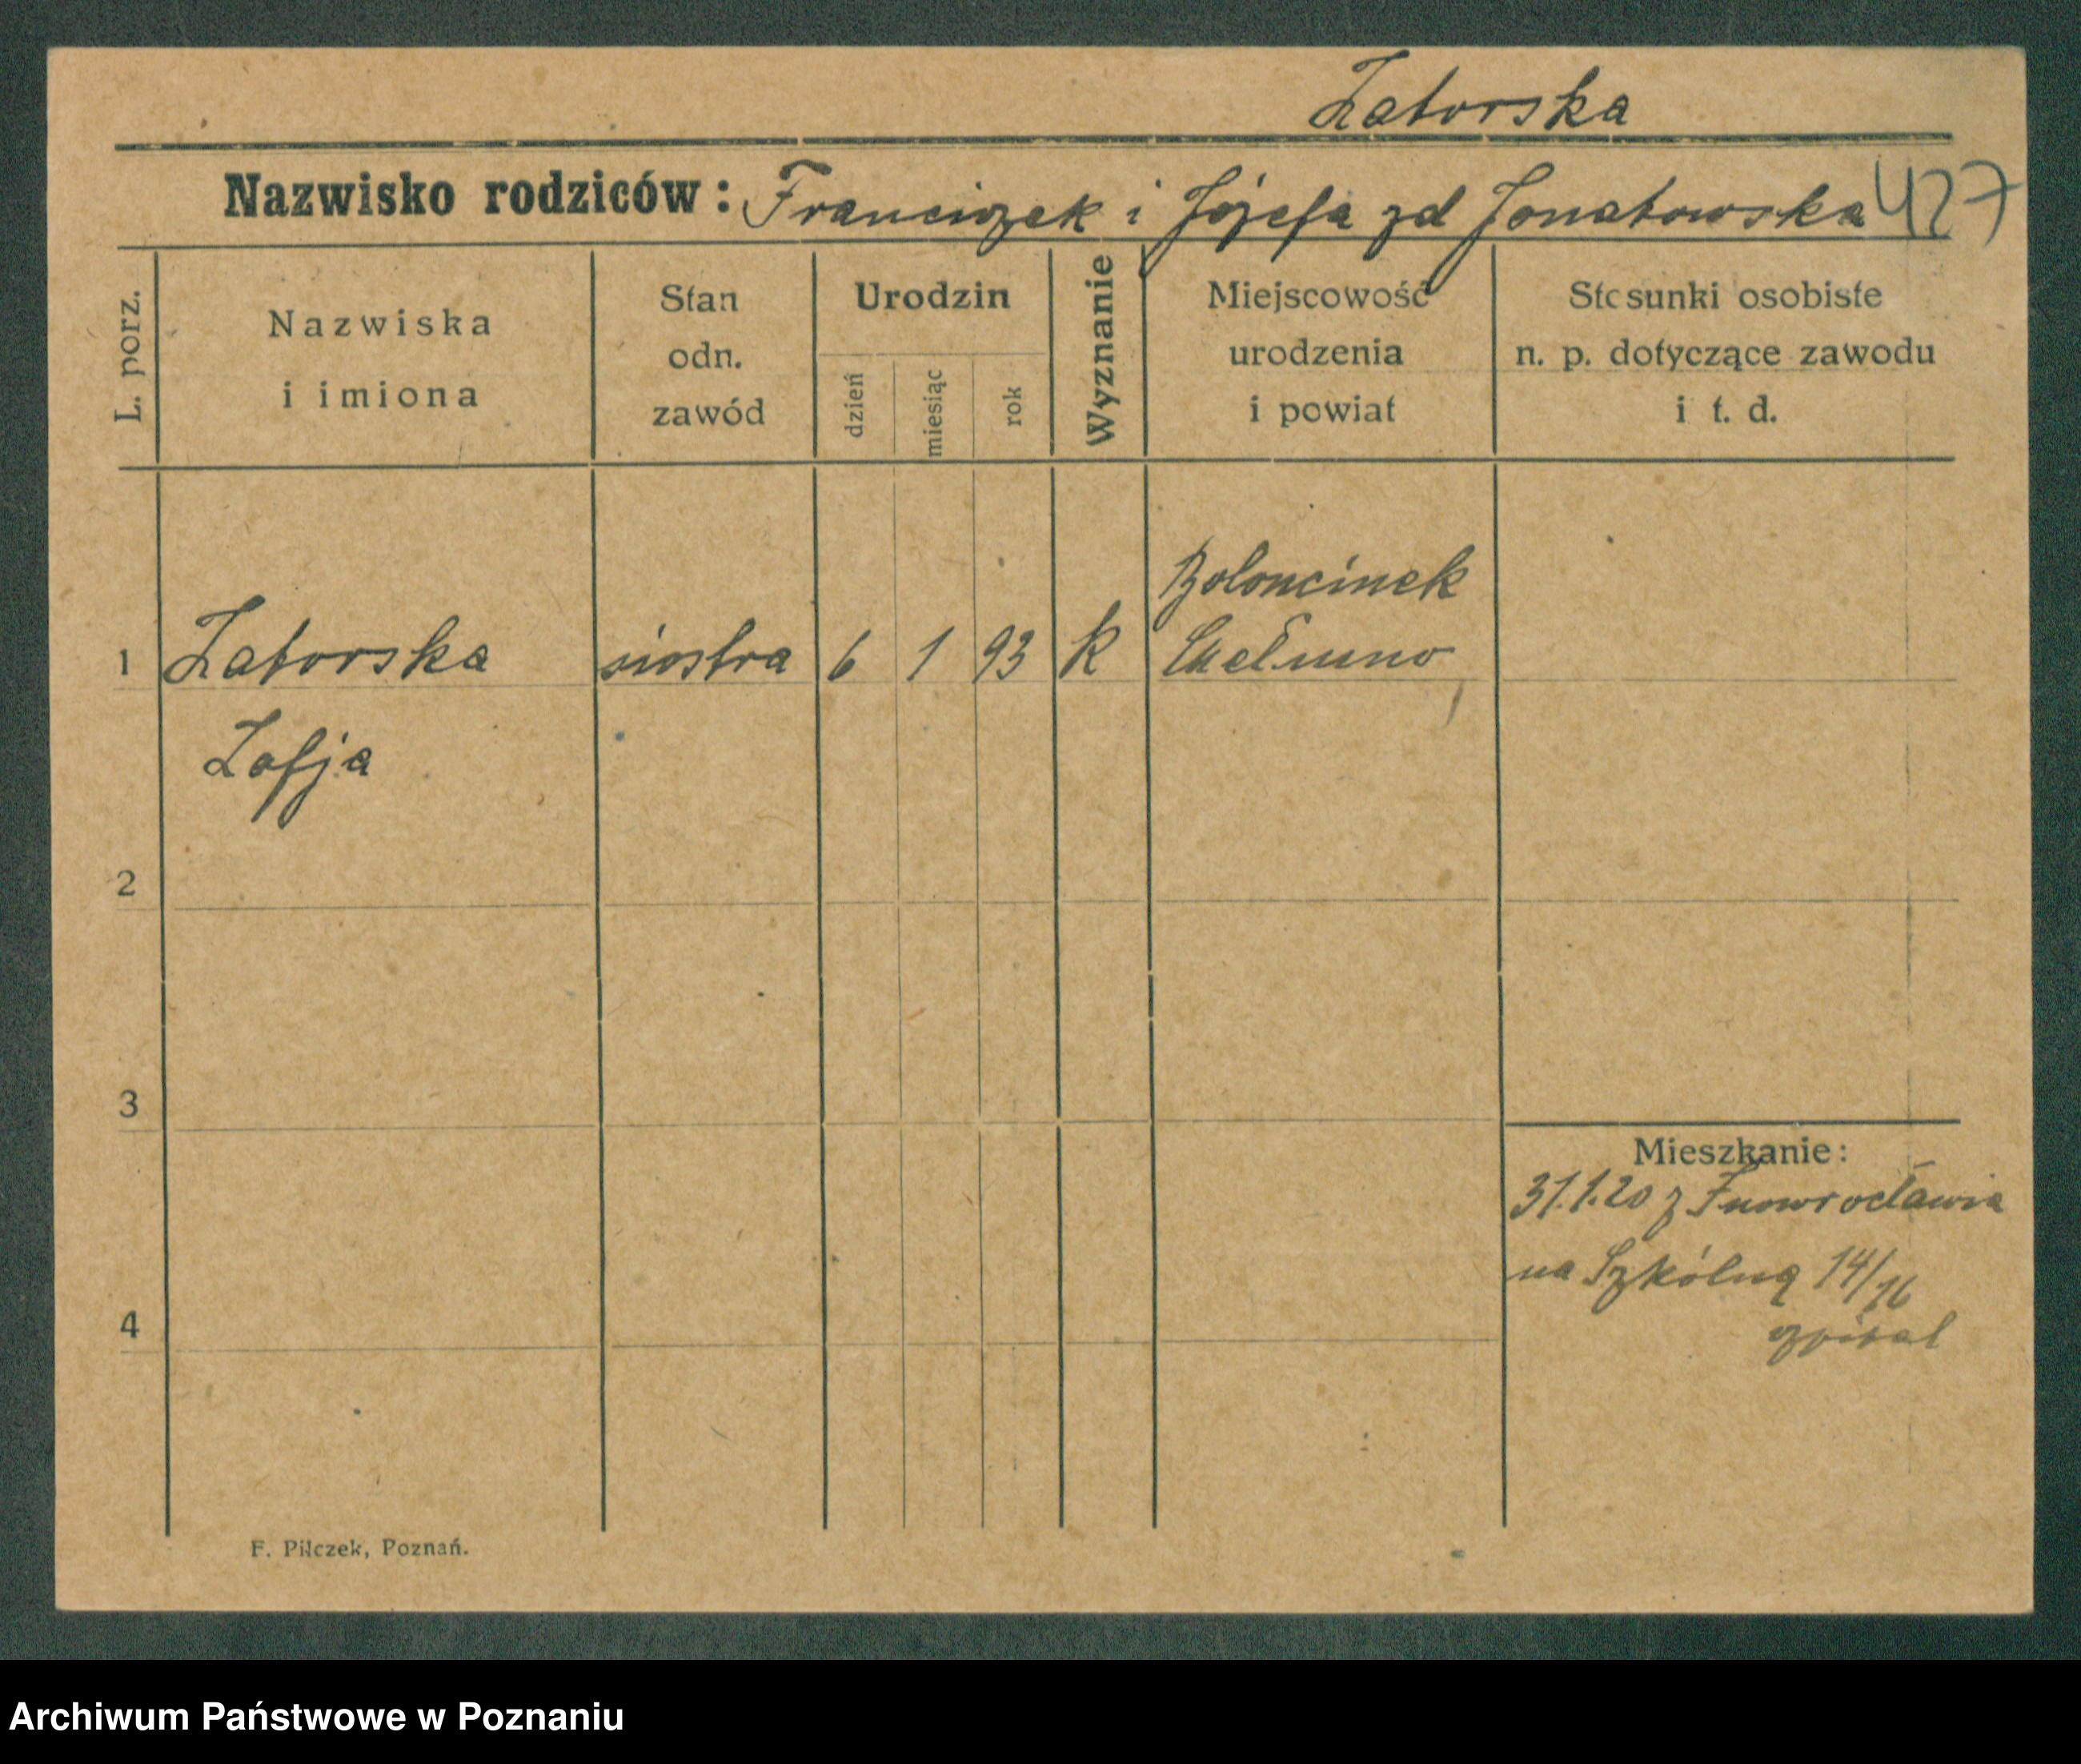 Zaborska
Nazwisko rodziców: Franciszek i Józefa zd Jonatowska 427
L. porz.
Nazwiska
i imiona
Stan
odn.
zawód
Urodzin
dzień
miesiąc
rok
Wyznanie
Miejscowość
urodzenia
i powiat
Stosunki osobiste
n. p. dotyczące zawodu
i t. d.
1 Zaborska siostra 6 1 93 k
Chełmno
Zofja
2
3
4
Mieszkanie:
31.1.20 z Inowrocławia
na Szkólną 14/16
szpital
F. Pilczek, Poznań.
Archiwum Państwowe w Poznaniu